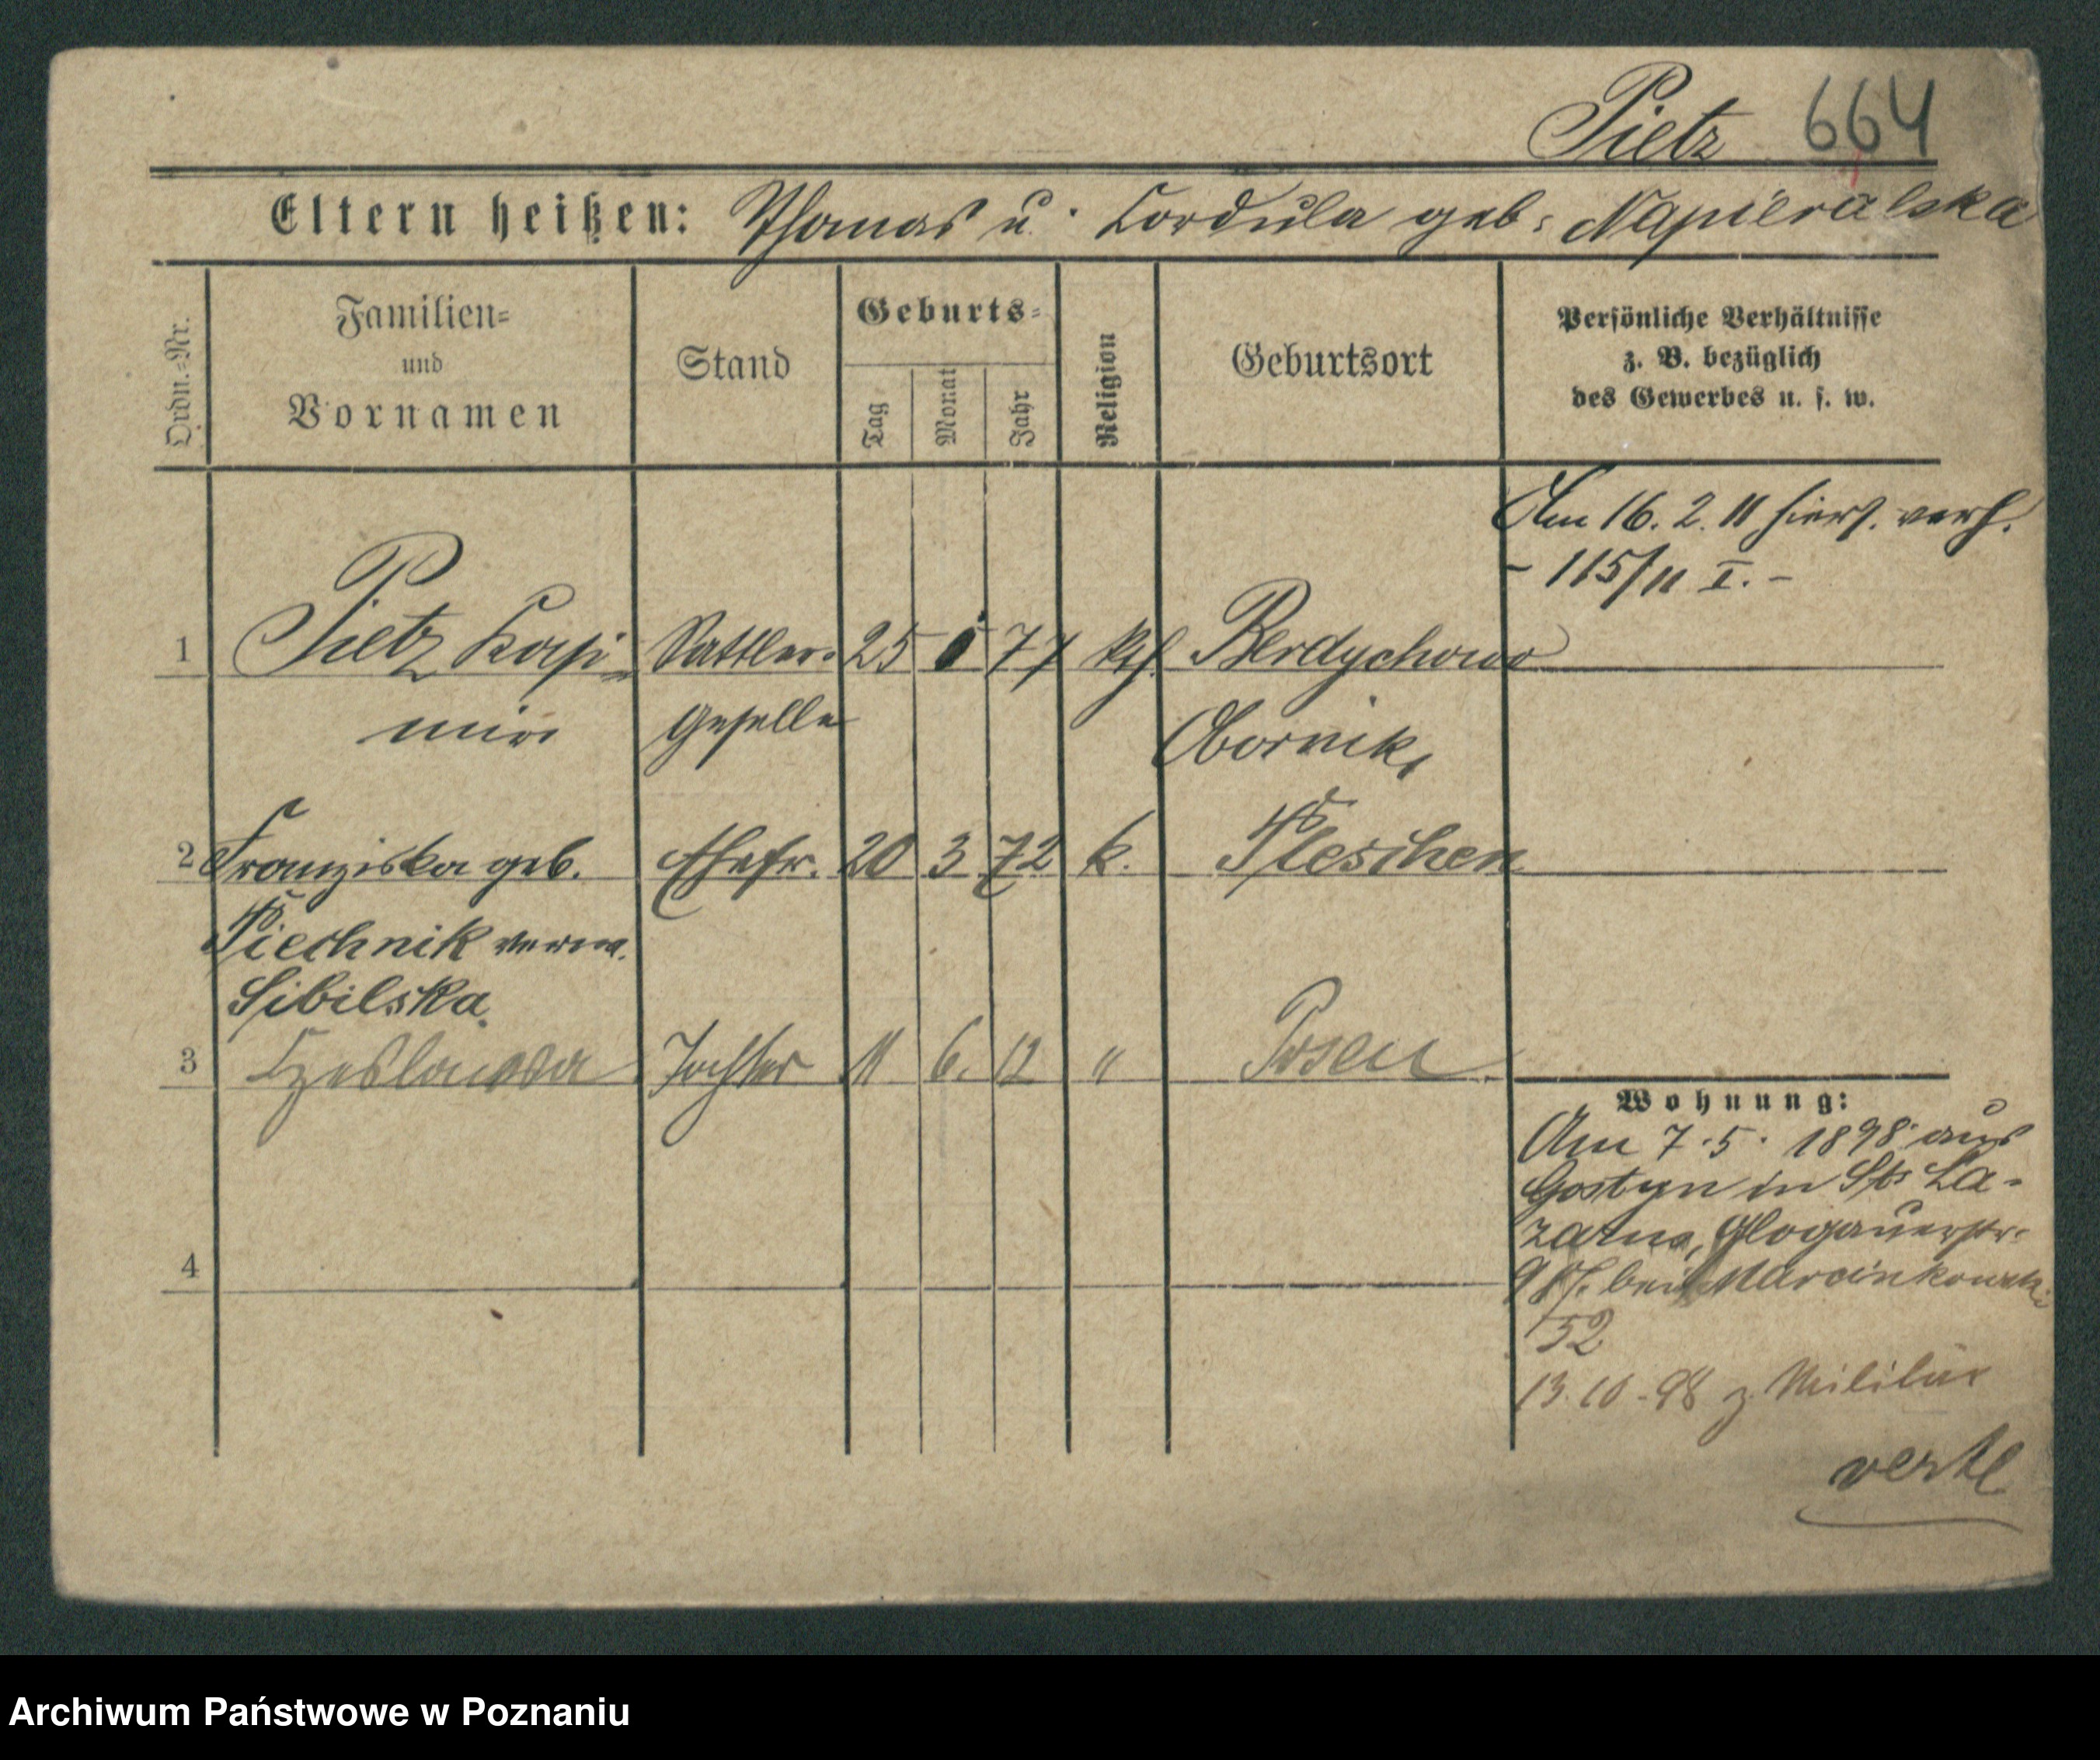 Pietz 664
Eltern heißen: Thomas u. Cordula geb. Napieralska
Ordn.=Nr.
Familien=
und
Vornamen
Stand
Geburts=
Tag
Monat
Jahr
Religion
Geburtsort
Persönliche Verhältnisse
z. B. bezüglich
des Gewerbes u. s. w.
Am 16. 2. 11 hiers. verh.
- 115/11 I. -
1 Pietz Kasi= Sattler= 25 77 kth. Berdychowo
mir Geselle Obornik
2 Franziska geb. Ehefr. 20 3 72 k. Pleschen
Piechnik verw.
Sibilska
3 Czeslawa Tochter 11 6. 12 " Posen
Wohnung:
Am 7.5. 1898 aus
Gostyn in St. La-
zarus, Glogauerstr.
bei Marcinkowski
52
4
13.10.98 z. Militär
verte
Archiwum Państwowe w Poznaniu